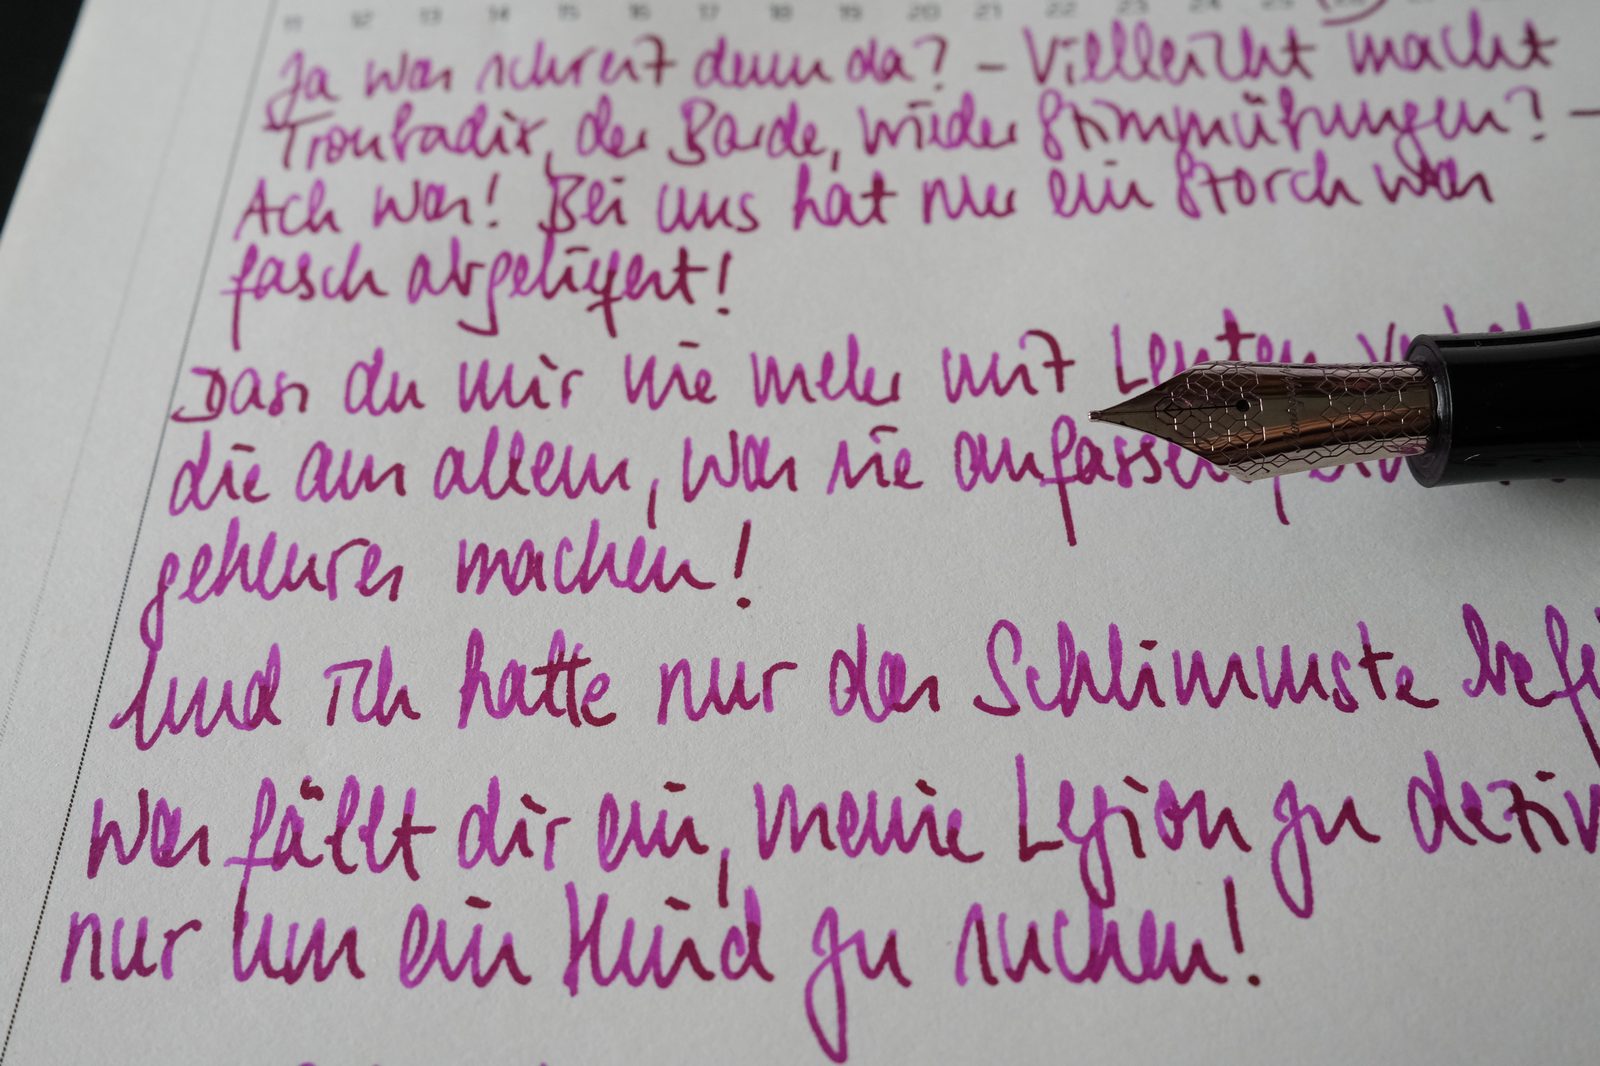 11 12 13 14 15 16 17 18 19 20 21 22 23 24 25 26
Ja was schreit denn da? – Vielleicht macht
Troubadix, der Barde, wieder Stimmübungen? –
Ach was! Bei uns hat nur ein Storch was
fasch abgeliefert!
Dass du mir nie mehr mit Leuten
die aus allem, was sie anfassen
geheures machen!
Und ich hatte nur das Schlimmste
Was fällt dir ein, meine Legion zu
nur um ein Kind zu suchen!